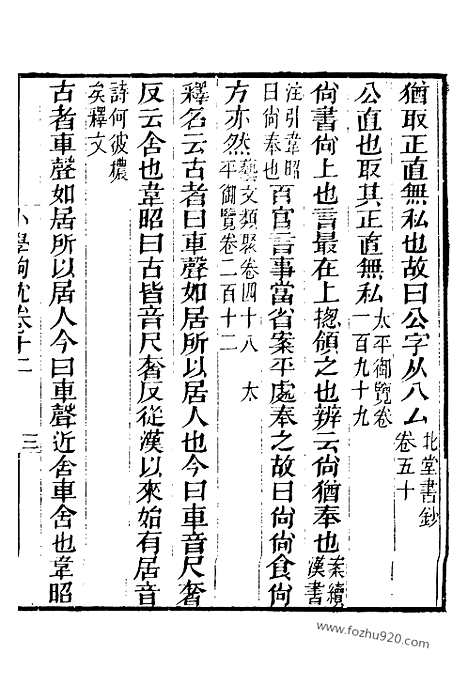 猶取正直無私也故曰公字从八厶北堂書鈔卷五十
公直也取其正直無私太平御覽卷一百九十九
尙書尙上也言最在上揔領之也辨云尙猶奉也案續漢書
注引韋昭曰尙奉也百官言事當省案平處奉之故曰尙尙食尙
方亦然藝文類聚卷四十八 太平御覽卷二百十二
釋名云古者曰車聲如居所以居人也今曰車音尺奢
反云舍也韋昭曰古皆音尺奢反從漢以來始有居音
詩何彼襛矣釋文
古者車聲如居所以居人今曰車聲近舍車舍也韋昭
小學鉤沈卷十二
三
www.fozhu920.com